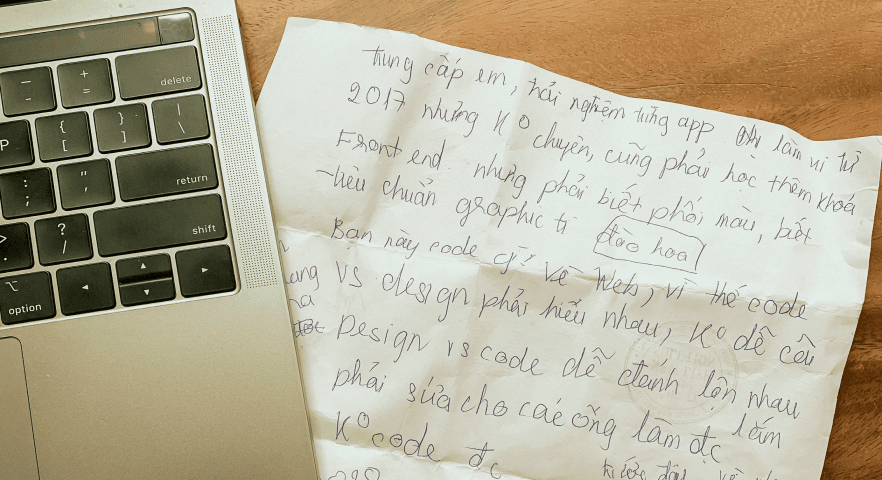 delete
return
shift
option
P
trung cấp em, trải nghiệm từng app làm ui từ
2017 nhưng K° chuyên, cũng phải học thêm khoá
Front end. nhưng phải biết phối màu, biết
tiêu chuẩn graphic tí đào hoa
Bạn này code gì? về Web, vì thế code
vs design phải hiểu nhau, K° dễ cãi
Design vs code dễ đánh lộn nhau lắm
phải sửa cho các ông làm đc
K° code đc